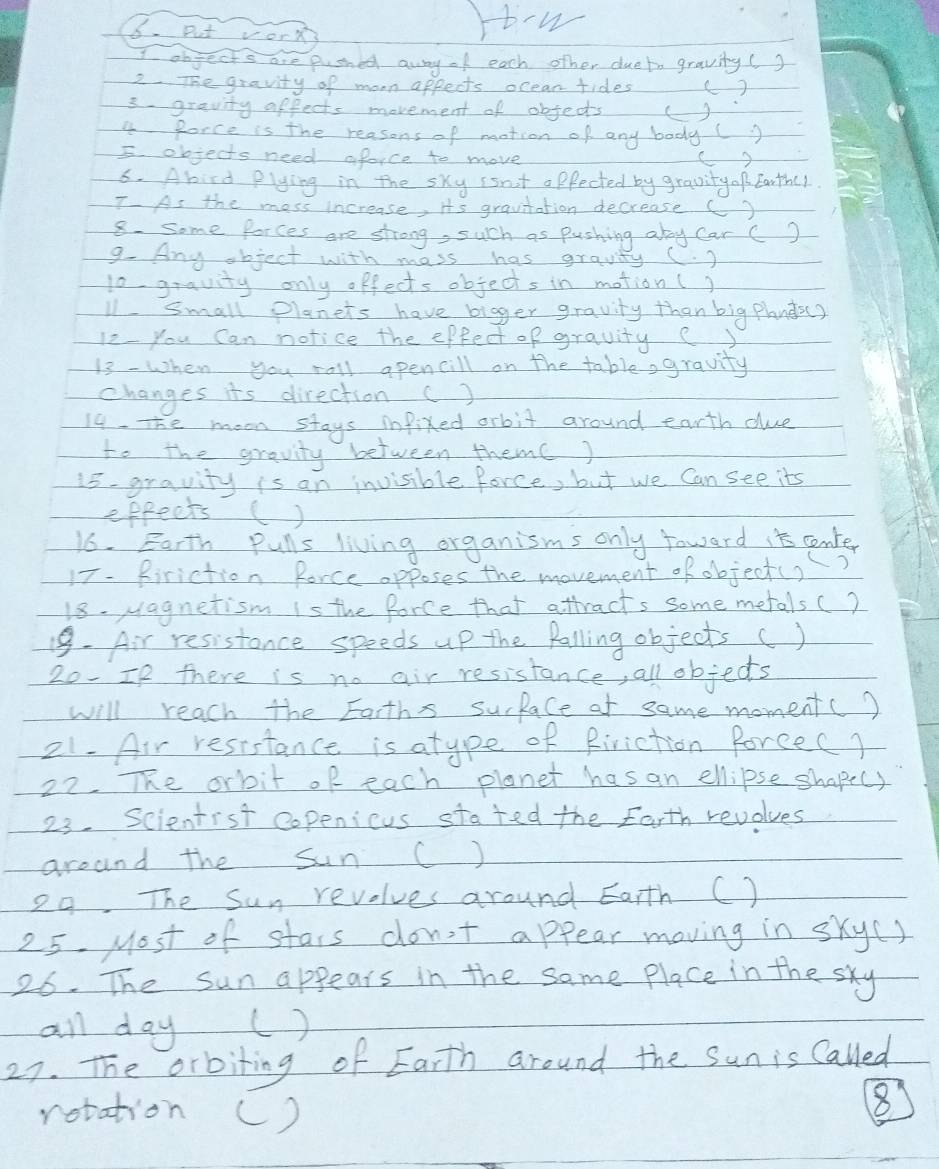 6- Put ✓ or X H.W
1- objects are pushed away of each other due to gravity ( )
2- The gravity of moon affects ocean tides ( )
3- gravity affects movement of objects ( )
4- force is the reasons of motion of any body ( )
5- objects need aforce to move ( )
6- Abird flying in the sky isn't affected by gravity of Earth ( )
7- As the mass increase, its gravitation decrease ( )
8- Some forces are strong, such as pushing atoy car ( )
9- Any object with mass has gravity ( )
10- gravity only affects objects in motion ( )
11- Small Planets have bigger gravity than big Planets ( )
12- You can notice the effect of gravity ( )
13- When you roll apencill on the table, gravity
changes its direction ( )
14- The moon stays infixed orbit around earth due
to the gravity between them ( )
15- gravity is an invisible force, but we can see its
effects ( )
16- Earth Pulls living organisms only toward its center ( )
17- firiction force opposes the movement of object ( )
18- Magnetism is the force that attracts some metals ( )
19- Air resistance speeds up the falling objects ( )
20- If there is no air resistance, all objects
will reach the Earth's surface at same moment ( )
21- Air resistance is atype of firiction force ( )
22. The orbit of each planet has an ellipse shape ( )
23. Scientist Copenicus stated the Earth revolves
around the Sun ( )
24. The Sun revolves around Earth ( )
25- Most of stars don't appear moving in sky ( )
26. The sun appears in the same place in the sky
all day ( )
27. The orbiting of Earth around the sun is Called
rotation ( )
8